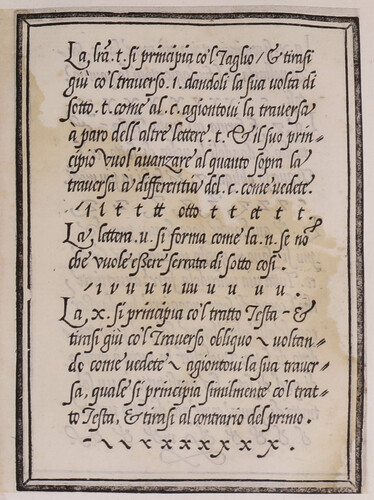 La, lr̃a .t. si principia co'l Taglio / & tirasi
giù co'l traverso .ı. dandoli la sua volta di
sotto .t. come al .c. agiontovi la traversa
a paro dell'altre lettere .t. & il suo prin=
cipio vuol'avanzare al quanto sopra la
traversa à differentia del .c. come vedete.
/ ı l t t tt otto t t et t t .
La, lettera .u. si forma come la .n. se nõ
che vuole eßere serrata di sotto cosi .
/ ı ν u u u u u u u u .
La, x. si principia co'l tratto Testa - &
tirasi giù co'l Traverso obliquo ~ voltan=
do come vedete ~ agiontovi la sua traver=
sa, quale si principia similmente co'l trat=
to Testa, & tirasi al contrario del primo .
- ~ ~ x x x x x x x .